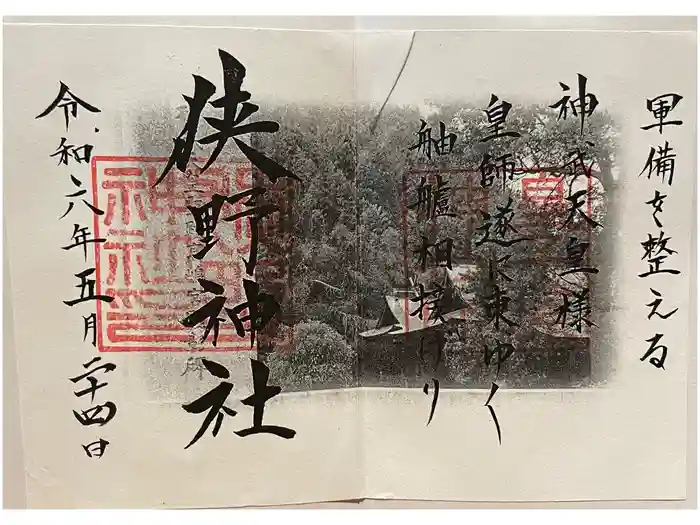 軍備を整える
神武天皇様
皇師遂に東ゆく
舳艫相接けり
狭野神社
令和六年五月二十四日